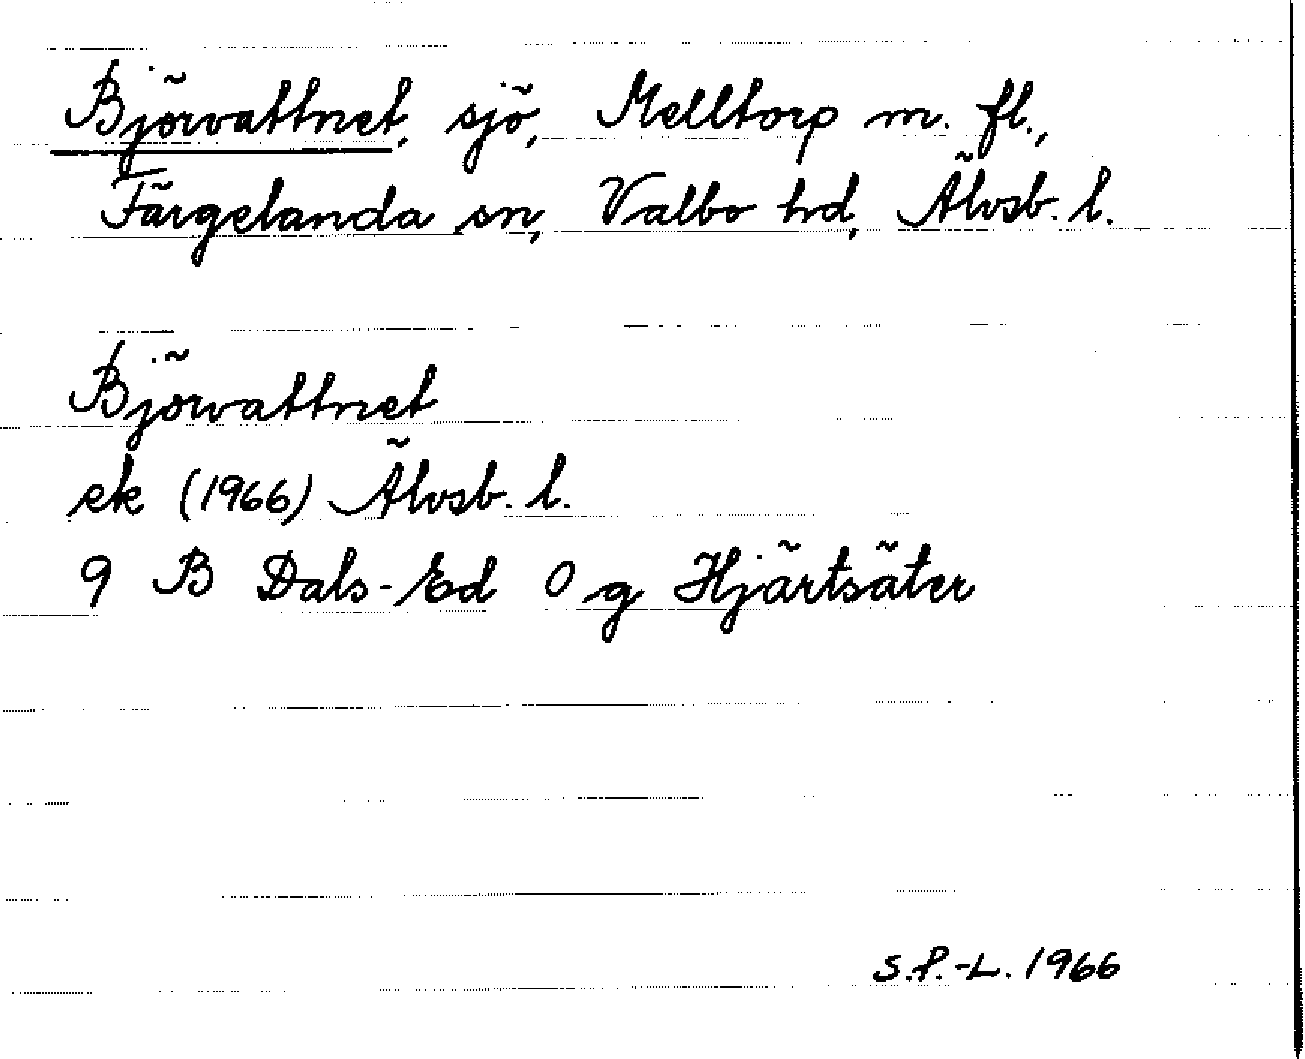 Björvattnet, sjö, Melltorp m. fl.,
Färgelanda sn, Valbo hd, Älvsb. l.
Björvattnet
ek (1966) Älvsb. l.
9 B Dals-Ed 0 g Hjärtsäter
S.P.-L. 1966